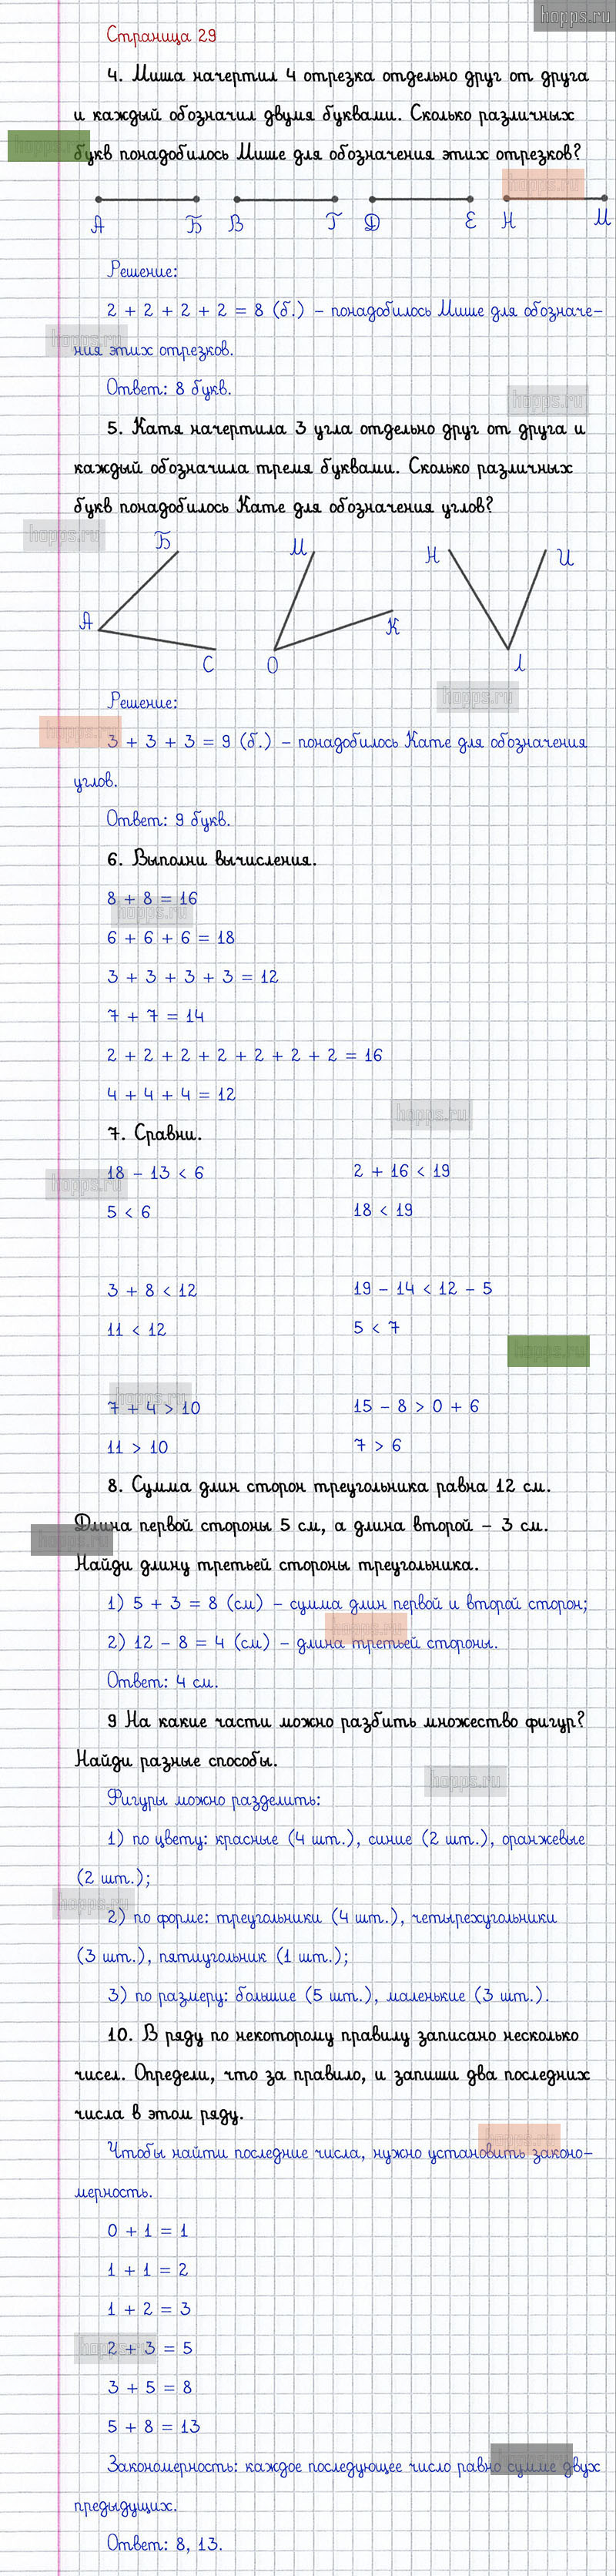 hopps.ru
Страница 29
4. Миша начертил 4 отрезка отдельно друг от друга
и каждый обозначил двумя буквами. Сколько различных
букв понадобилось Мише для обозначения этих отрезков?
А Б В Г Д Е Н М
Решение:
2 + 2 + 2 + 2 = 8 (б.) – понадобилось Мише для обозначе-
ния этих отрезков.
Ответ: 8 букв.
5. Катя начертила 3 угла отдельно друг от друга и
каждый обозначила тремя буквами. Сколько различных
букв понадобилось Кате для обозначения углов?
Б М Н И
А К
С О Л
Решение:
3 + 3 + 3 = 9 (б.) – понадобилось Кате для обозначения
углов.
Ответ: 9 букв.
6. Выполни вычисления.
8 + 8 = 16
6 + 6 + 6 = 18
3 + 3 + 3 + 3 = 12
7 + 7 = 14
2 + 2 + 2 + 2 + 2 + 2 + 2 = 16
4 + 4 + 4 = 12
7. Сравни.
18 – 13 < 6 2 + 16 < 19
5 < 6 18 < 19
3 + 8 < 12 19 – 14 < 12 – 5
11 < 12 5 < 7
7 + 4 > 10 15 – 8 > 0 + 6
11 > 10 7 > 6
8. Сумма длин сторон треугольника равна 12 см.
Длина первой стороны 5 см, а длина второй – 3 см.
Найди длину третьей стороны треугольника.
1) 5 + 3 = 8 (см) – сумма длин первой и второй сторон;
2) 12 – 8 = 4 (см) – длина третьей стороны.
Ответ: 4 см.
9 На какие части можно разбить множество фигур?
Найди разные способы.
Фигуры можно разделить:
1) по цвету: красные (4 шт.), синие (2 шт.), оранжевые
(2 шт.);
2) по форме: треугольники (4 шт.), четырехугольники
(3 шт.), пятиугольник (1 шт.);
3) по размеру: большие (5 шт.), маленькие (3 шт.).
10. В ряду по некоторому правилу записано несколько
чисел. Определи, что за правило, и запиши два последних
числа в этом ряду.
Чтобы найти последние числа, нужно установить законо-
мерность.
0 + 1 = 1
1 + 1 = 2
1 + 2 = 3
2 + 3 = 5
3 + 5 = 8
5 + 8 = 13
Закономерность: каждое последующее число равно сумме двух
предыдущих.
Ответ: 8, 13.